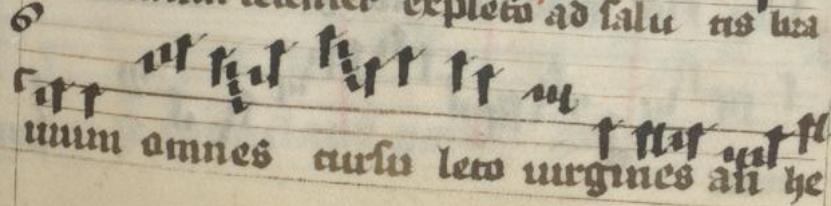 expleto ad salu tis bra
uium omnes cursu leto uirgines an he